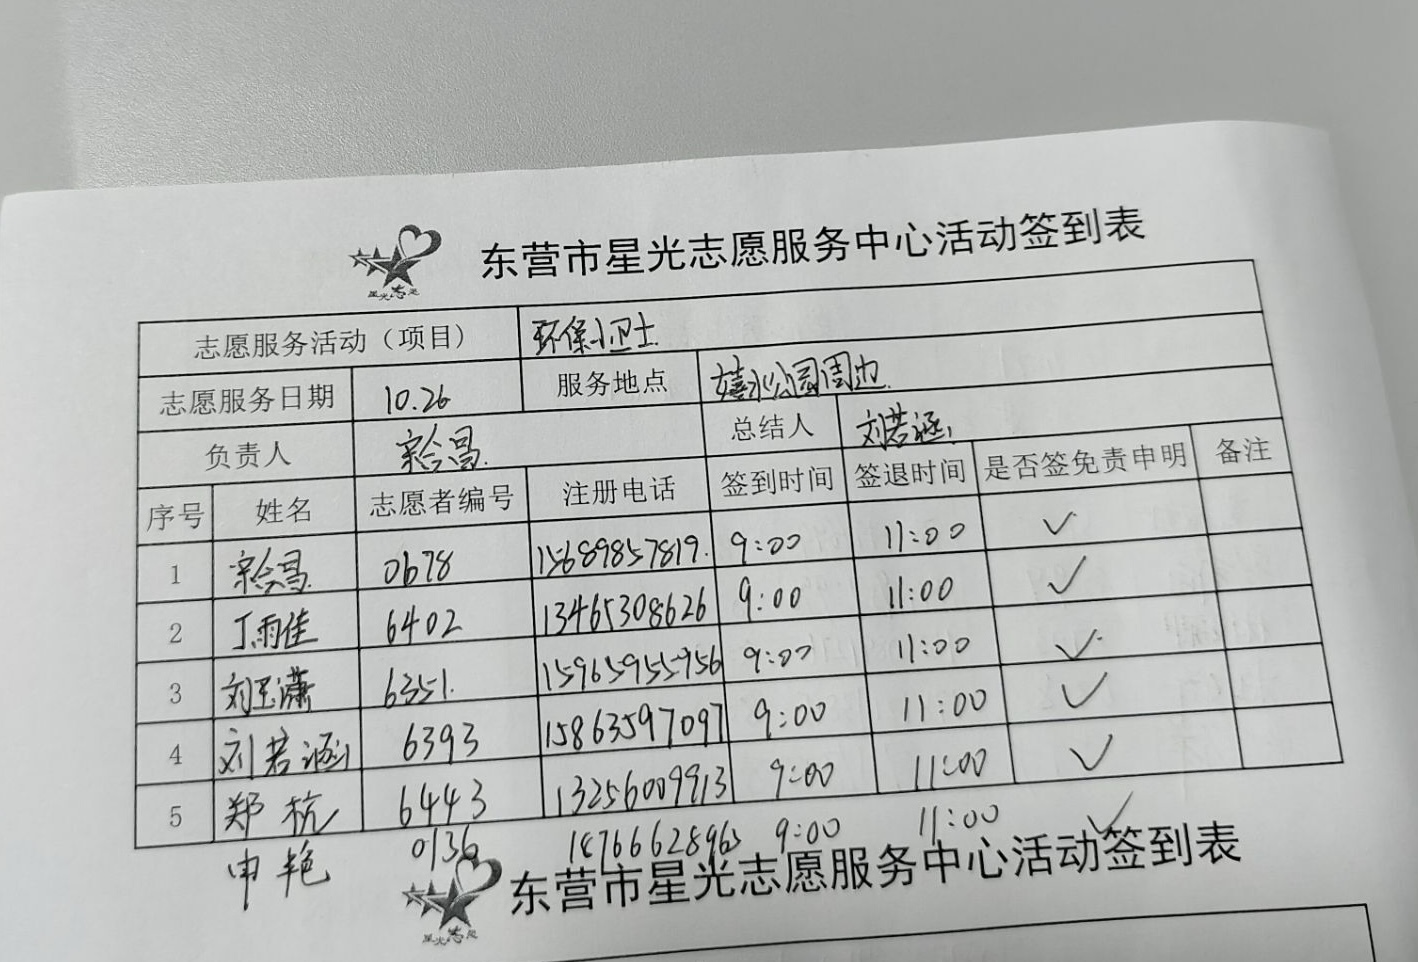 东营市星光志愿服务中心活动签到表
星光志愿
志愿服务活动（项目） 环保小卫士
志愿服务日期 10.26 服务地点 嬉水公园周边
负责人 宗会昌 总结人 刘若涵
序号 姓名 志愿者编号 注册电话 签到时间 签退时间 是否签免责申明 备注
1 宗会昌 0678 15689857819. 9:00 11:00 ✓
2 丁雨佳 6402 13465308626 9:00 11:00 ✓
3 刘玉潇 6351. 15965955756 9:00 11:00 ✓
4 刘若涵 6393 15863597097 9:00 11:00 ✓
5 郑杭 6443 13256009913 9:00 11:00 ✓
申艳 0136 9:00 11:00 ✓
东营市星光志愿服务中心活动签到表
星光志愿